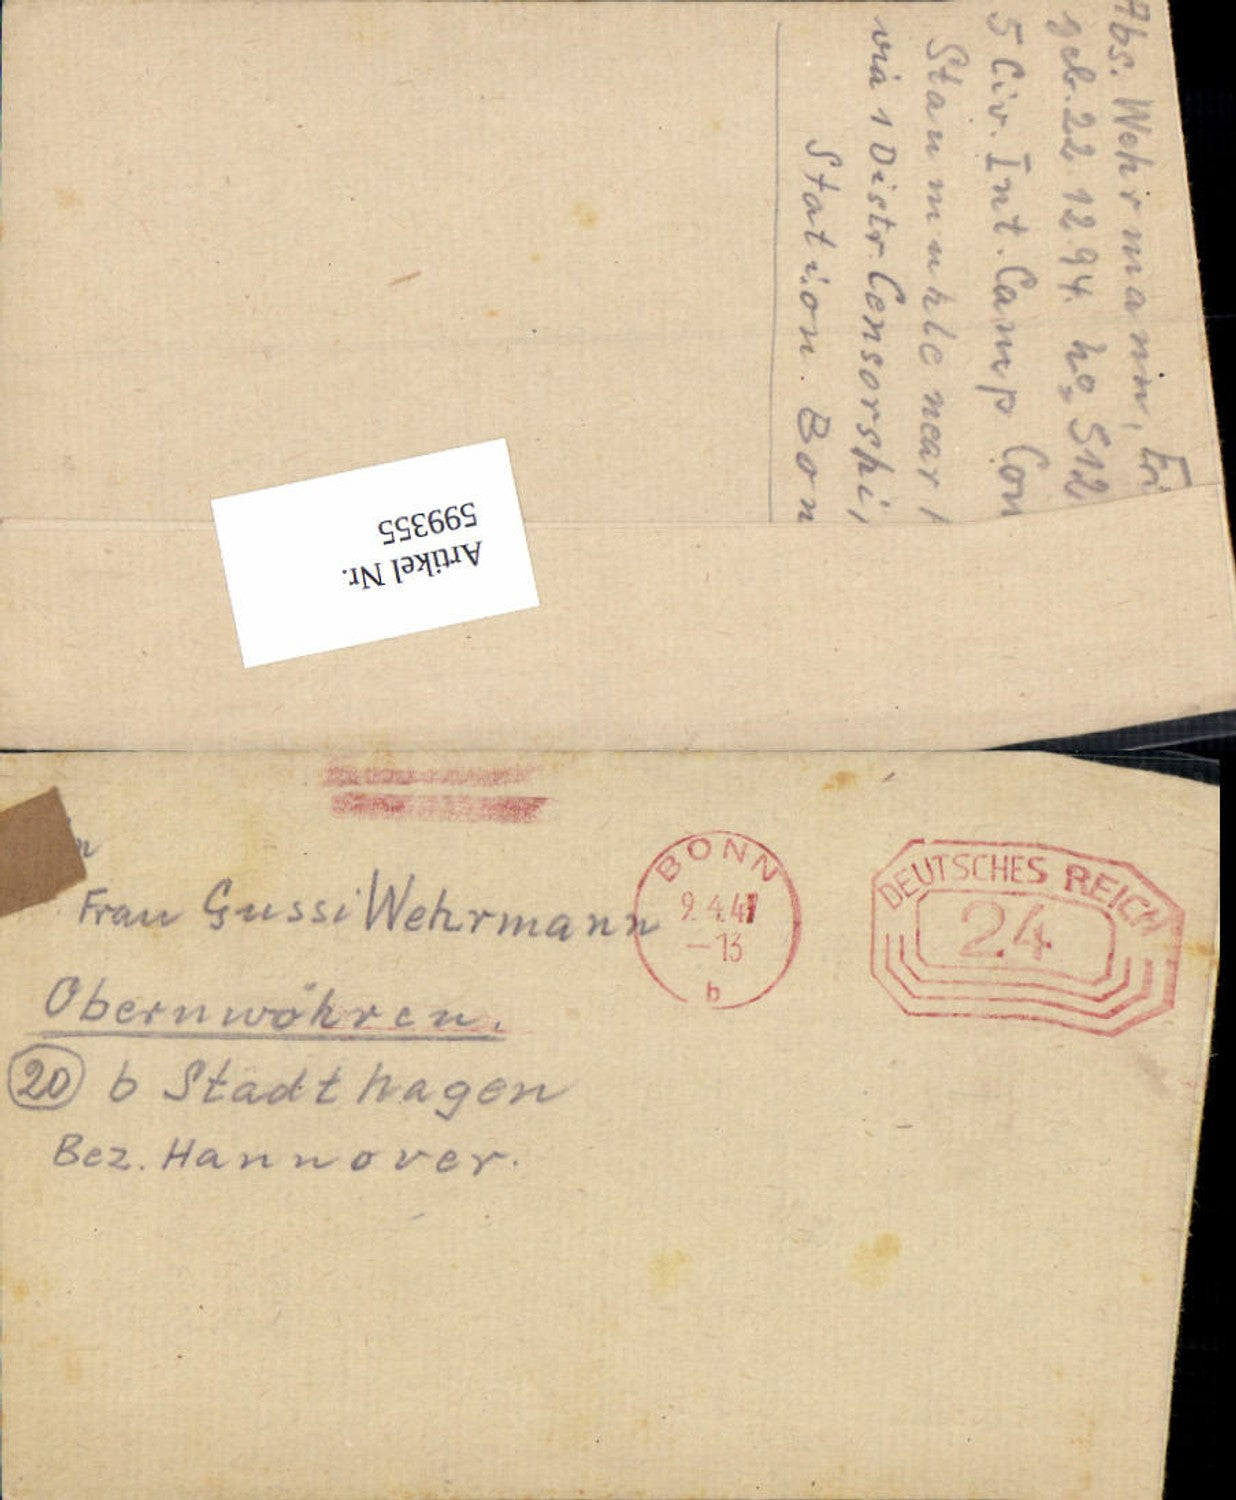 Abs. Wehrmann,
geb. 22.12.94. No. 512
5 Civ. Int. Camp
Staumühle near
via 1 Distr. Censorshi
Station. Bon
Artikel Nr.
599355
Frau Gussi Wehrmann
Obernwöhren.
20 b Stadthagen
Bez. Hannover.
BONN
9.4.47
-13
b
DEUTSCHES REICH
24